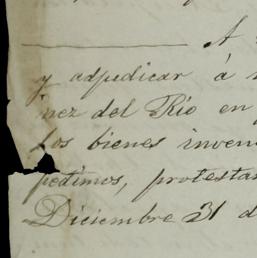 A
y adjudicar á
nez del Rio en
los bienes inven
pedimos, protestan
Diciembre 31 d